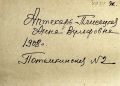 Аптекарь Плоцкая
Анна Вульфовна
1908 г.
Потемкинская №2